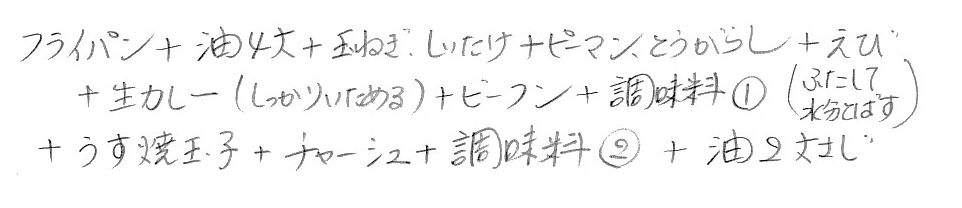 フライパン + 油4大 + 玉ねぎ、しいたけ + ピーマン、とうがらし + えび
+ 生カレー (しっかりいためる) + ビーフン + 調味料① (ふたして
水分とばす)
+ うす焼玉子 + チャーシュ + 調味料② + 油2大さじ